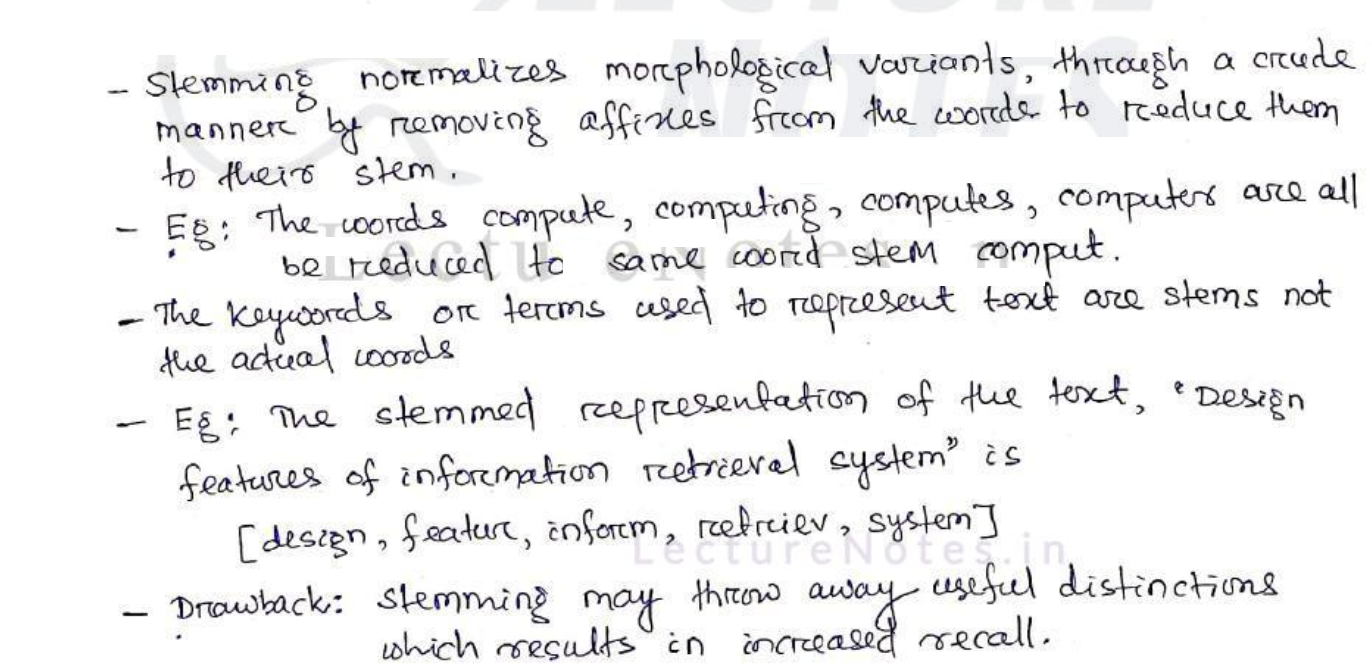 LECTURE
NOTES
- Stemming normalizes morphological variants, through a crude
manner by removing affixes from the words to reduce them
to their stem.
- Eg: The words compute, computing, computes, computers are all
be reduced to same word stem comput.
- The keywords or terms used to represent text are stems not
the actual words
- Eg: The stemmed representation of the text, "Design
features of information retrieval system" is
[design, featur, inform, retriev, system]
LectureNotes.in
- Drawback: Stemming may throw away useful distinctions
which results in increased recall.